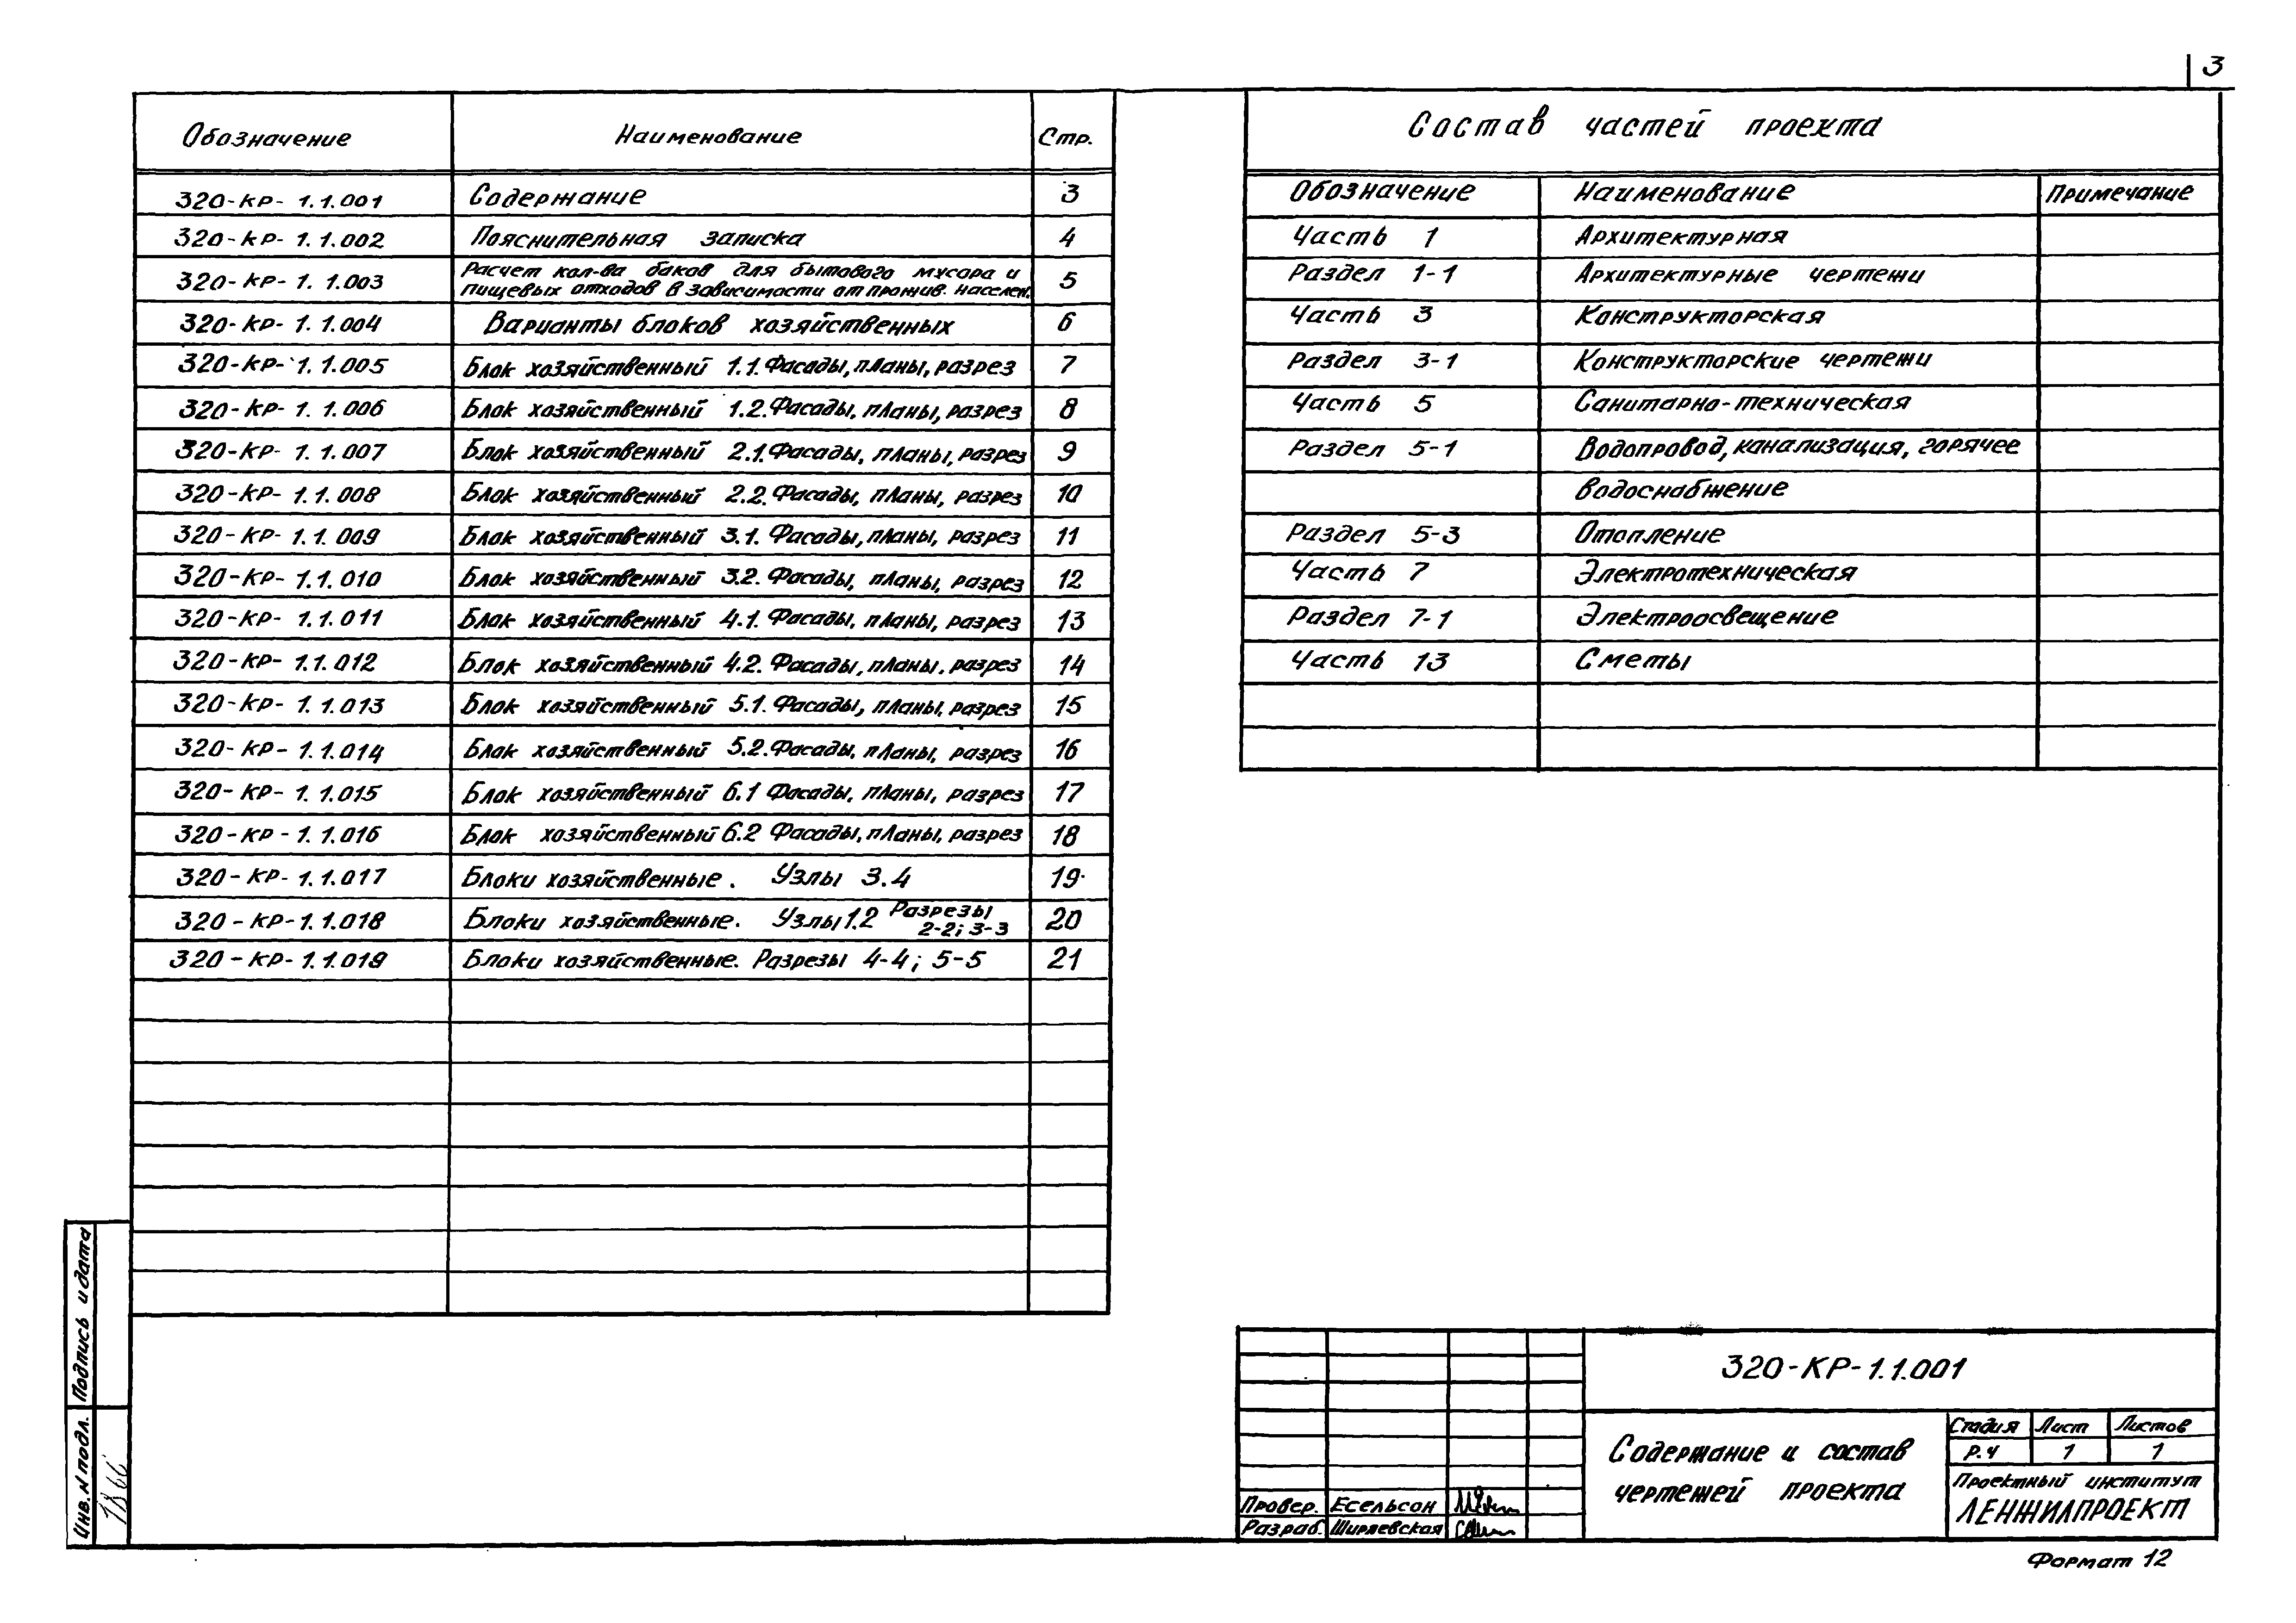 3
Обозначение Наименование Стр.
320-КР-1.1.001 Содержание 3
320-КР-1.1.002 Пояснительная записка 4
320-КР-1.1.003 Расчет кол-ва баков для бытового мусора и
пищевых отходов в зависимости от прожив. населен. 5
320-КР-1.1.004 Варианты блоков хозяйственных 6
320-КР-1.1.005 Блок хозяйственный 1.1. Фасады, планы, разрез 7
320-КР-1.1.006 Блок хозяйственный 1.2. Фасады, планы, разрез 8
320-КР-1.1.007 Блок хозяйственный 2.1. Фасады, планы, разрез 9
320-КР-1.1.008 Блок хозяйственный 2.2. Фасады, планы, разрез 10
320-КР-1.1.009 Блок хозяйственный 3.1. Фасады, планы, разрез 11
320-КР-1.1.010 Блок хозяйственный 3.2. Фасады, планы, разрез 12
320-КР-1.1.011 Блок хозяйственный 4.1. Фасады, планы, разрез 13
320-КР-1.1.012 Блок хозяйственный 4.2. Фасады, планы, разрез 14
320-КР-1.1.013 Блок хозяйственный 5.1. Фасады, планы, разрез 15
320-КР-1.1.014 Блок хозяйственный 5.2. Фасады, планы, разрез 16
320-КР-1.1.015 Блок хозяйственный 6.1 Фасады, планы, разрез 17
320-КР-1.1.016 Блок хозяйственный 6.2 Фасады, планы, разрез 18
320-КР-1.1.017 Блоки хозяйственные. Узлы 3.4 19
320-КР-1.1.018 Блоки хозяйственные. Узлы 1.2 Разрезы 2-2; 3-3 20
320-КР-1.1.019 Блоки хозяйственные. Разрезы 4-4; 5-5 21
Состав частей проекта
Обозначение Наименование Примечание
Часть 1 Архитектурная
Раздел 1-1 Архитектурные чертежи
Часть 3 Конструкторская
Раздел 3-1 Конструкторские чертежи
Часть 5 Санитарно-техническая
Раздел 5-1 Водопровод, канализация, горячее
водоснабжение
Раздел 5-3 Отопление
Часть 7 Электротехническая
Раздел 7-1 Электроосвещение
Часть 13 Сметы
Подпись и дата
Инв. N подл.
320-КР-1.1.001
Содержание и состав
чертежей проекта
Стадия Лист Листов
Р.Ч 1 1
Проектный институт
ЛЕНЖИЛПРОЕКТ
Провер. Есельсон
Разраб. Ширяевская
Формат 12